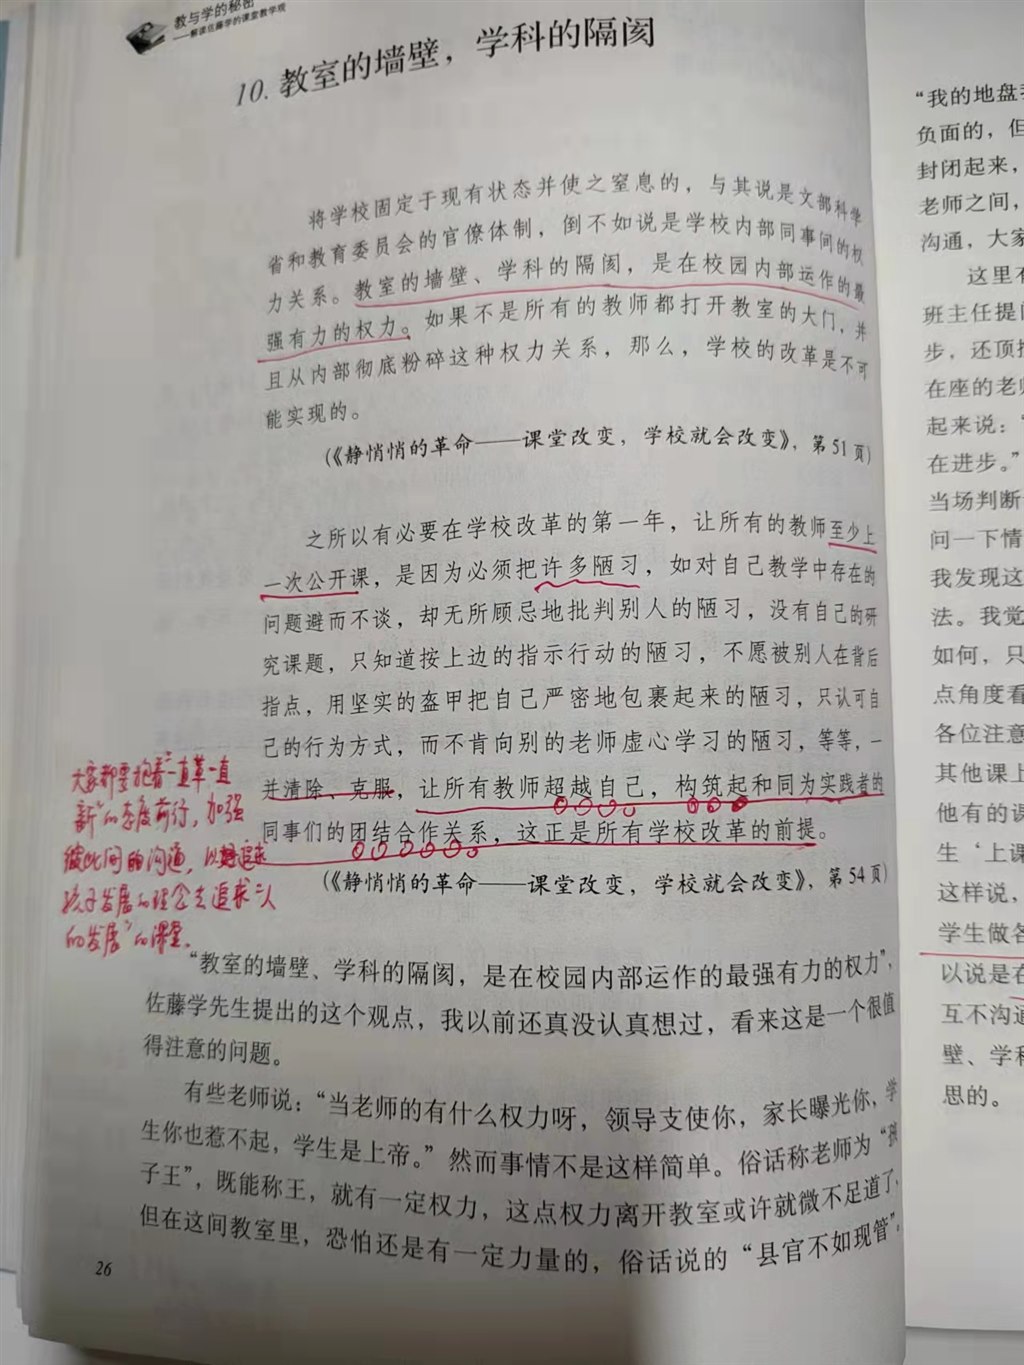 教与学的秘密
——解读佐藤学的课堂教学观
10. 教室的墙壁，学科的隔阂
将学校固定于现有状态并使之窒息的，与其说是文部科学
省和教育委员会的官僚体制，倒不如说是学校内部同事间的权
力关系。教室的墙壁、学科的隔阂，是在校园内部运作的最
强有力的权力。如果不是所有的教师都打开教室的大门，并
且从内部彻底粉碎这种权力关系，那么，学校的改革是不可
能实现的。
（《静悄悄的革命——课堂改变，学校就会改变》，第51页）
之所以有必要在学校改革的第一年，让所有的教师至少上
一次公开课，是因为必须把许多陋习，如对自己教学中存在的
问题避而不谈，却无所顾忌地批判别人的陋习，没有自己的研
究课题，只知道按上边的指示行动的陋习，不愿被别人在背后
指点，用坚实的盔甲把自己严密地包裹起来的陋习，只认可自
己的行为方式，而不肯向别的老师虚心学习的陋习，等等，一
并清除、克服，让所有教师超越自己，构筑起和同为实践者的
同事们的团结合作关系，这正是所有学校改革的前提。
（《静悄悄的革命——课堂改变，学校就会改变》，第54页）
大家都要抱着“一直革一直
新”的态度前行，加强
彼此间的沟通，以追求
孩子发展的理念去追求“人
的发展”的课堂。
“教室的墙壁、学科的隔阂，是在校园内部运作的最强有力的权力”，
佐藤学先生提出的这个观点，我以前还真没认真想过，看来这是一个很值
得注意的问题。
有些老师说：“当老师的有什么权力呀，领导支使你，家长曝光你，学
生你也惹不起，学生是上帝。”然而事情不是这样简单。俗话称老师为“孩
子王”，既能称王，就有一定权力，这点权力离开教室或许就微不足道了，
但在这间教室里，恐怕还是有一定力量的，俗话说的“县官不如现管”。
26
“我的地盘
负面的，但
封闭起来，
老师之间，
沟通，大家
这里有
班主任提
步，还顶
在座的老师
起来说：
在进步。”
当场判断
问一下情
我发现这
法。我觉
如何，只
点角度看
各位注意
其他课上
他有的课
生‘上课
这样说，
学生做各
以说是在
互不沟通
壁、学科
思的。